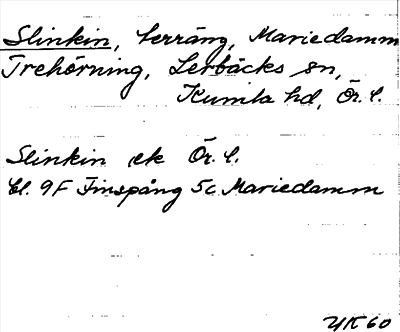 Slinkin, terräng, Mariedamm
Trehörning, Lerbäcks sn,
Kumla hd, Ör. l.
Slinkin ek Ör. l.
bl. 9F Finspång 5c Mariedamm
UK 60